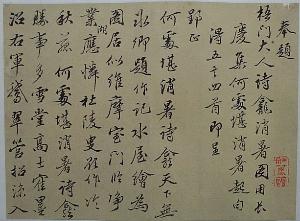 奉題
梧門大人詩龕消暑圖用長
慶集何處堪消暑起句
得五十四首即呈
郢正
何處堪消暑詩龕天下無
冰卿題作記水屋繪為
圖居似維摩室門臨淨
業湖應憐杜陵叟作
秋菰何處堪消暑詩龕
勝事多雪堂高士寉墨
沼右軍鵞翠管招涼入